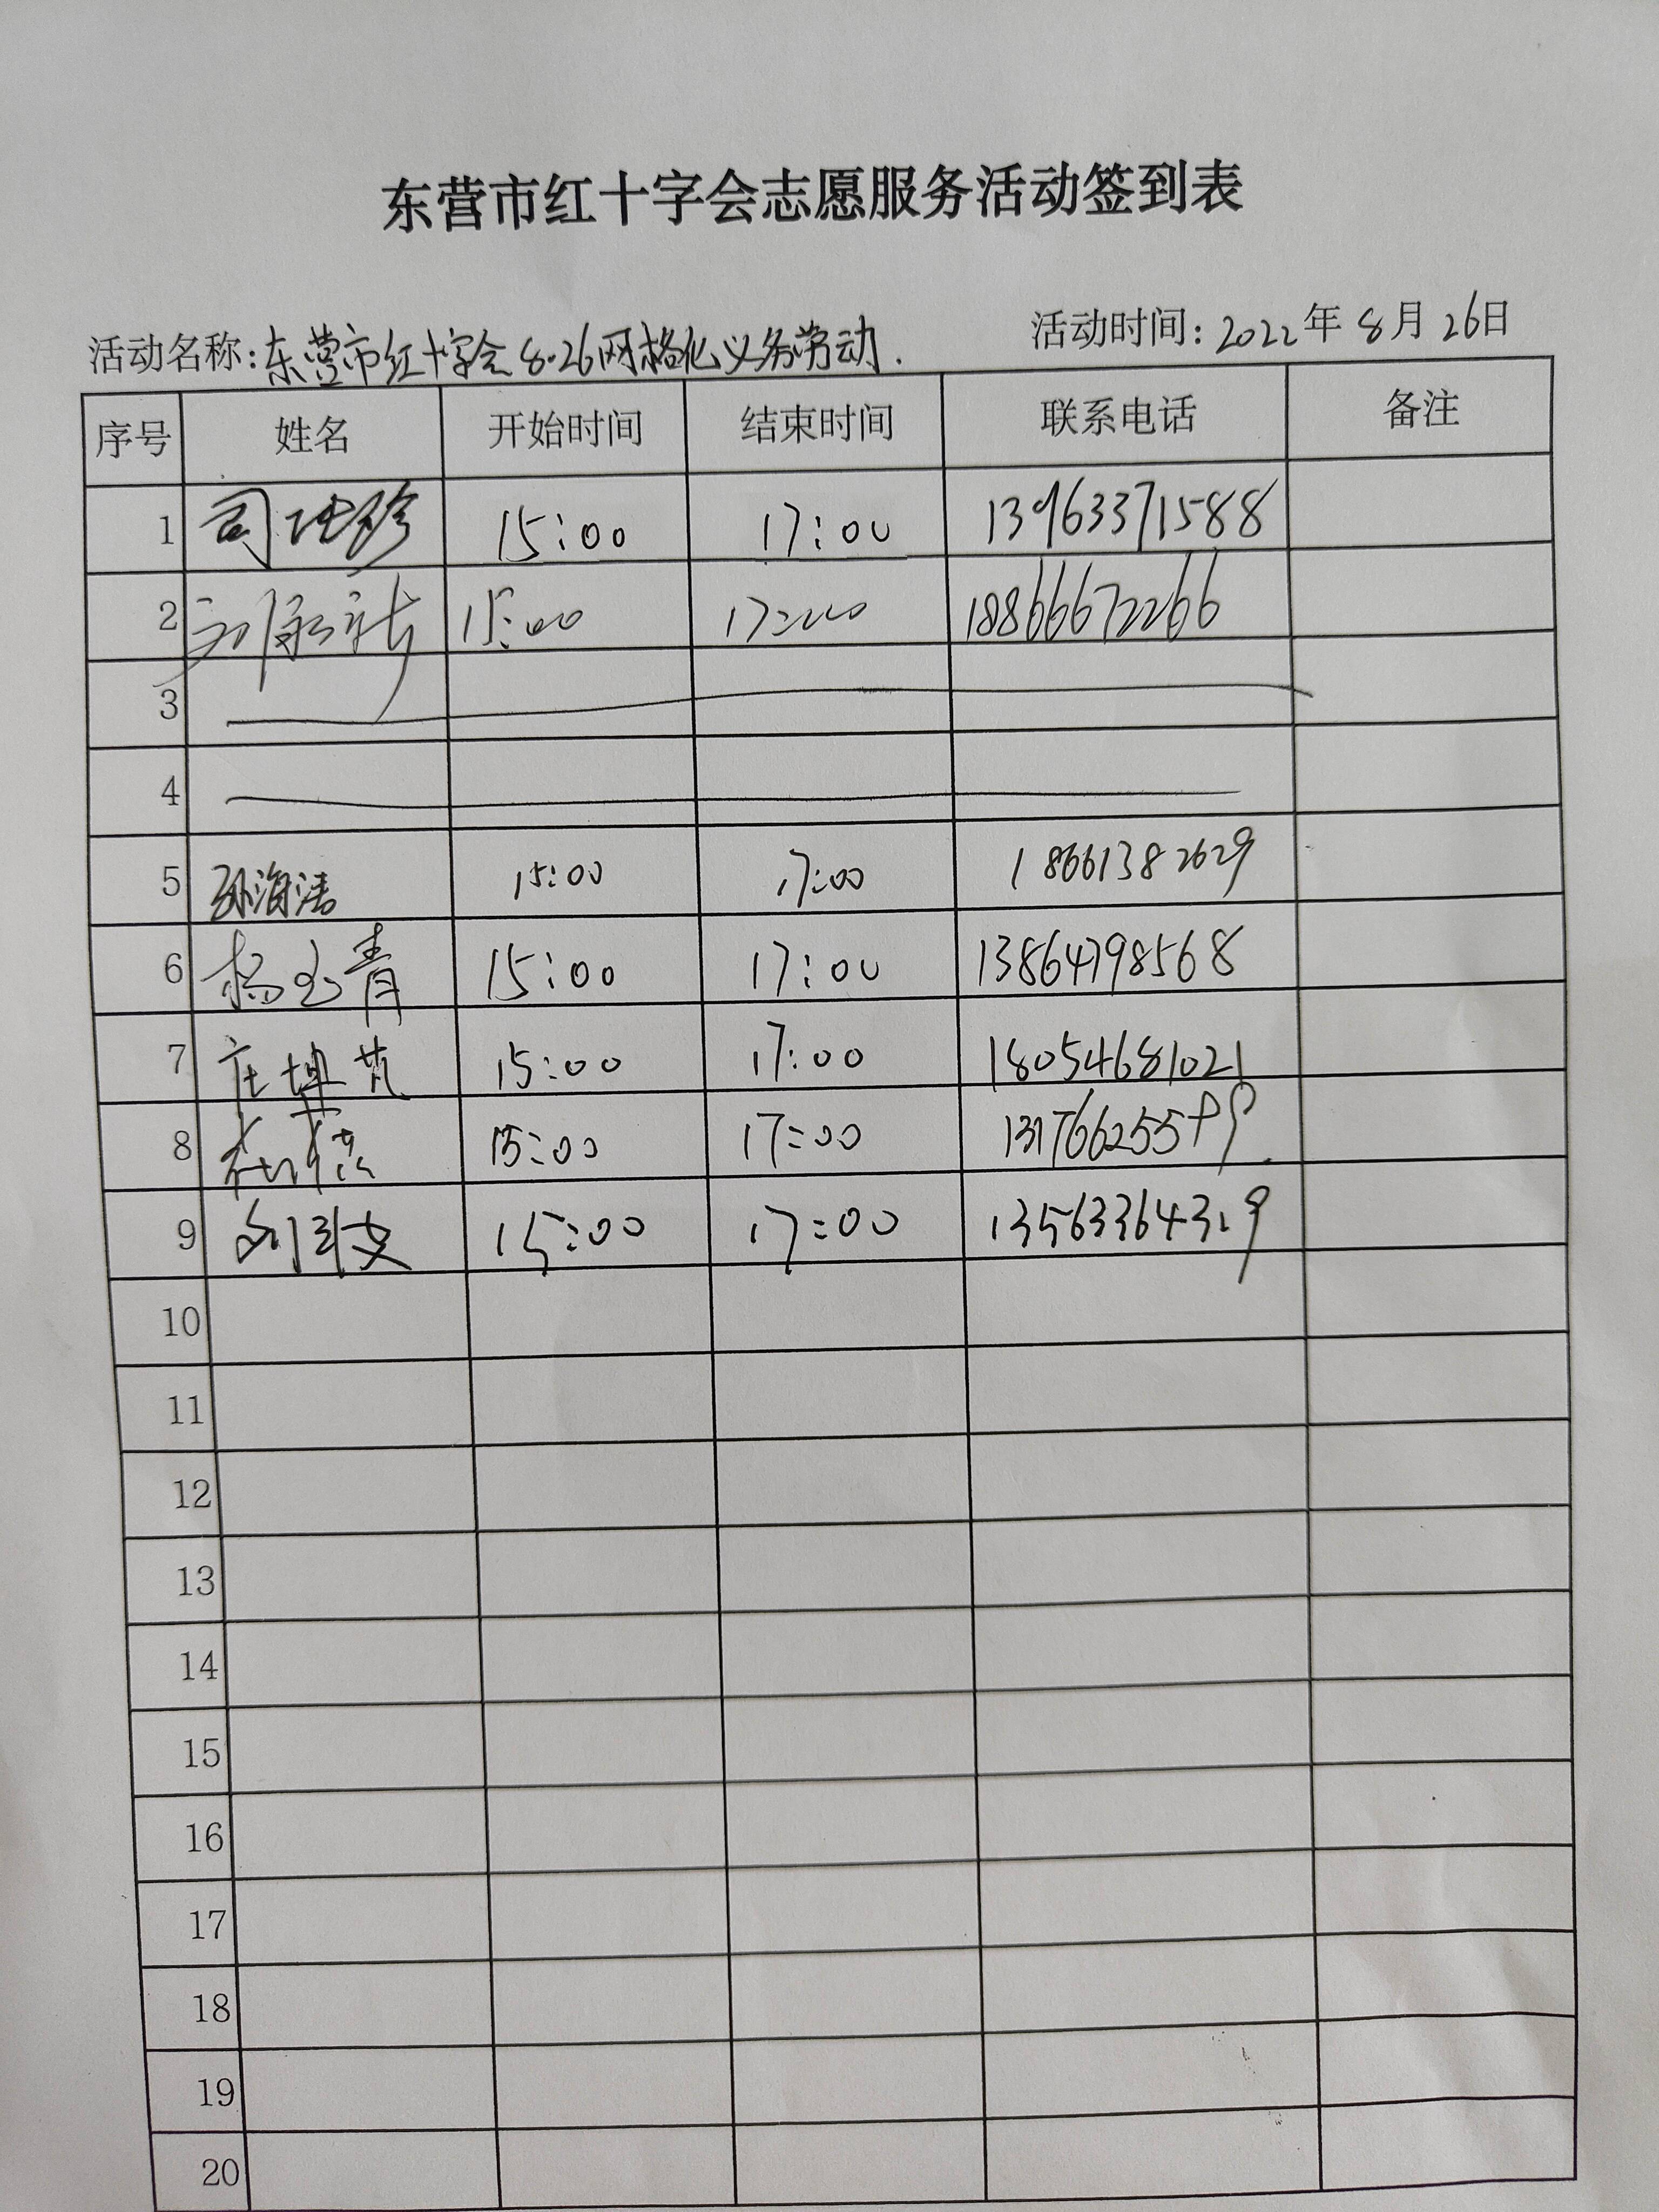 东营市红十字会志愿服务活动签到表
活动名称:东营市红十字会8.26网格化义务劳动. 活动时间:2022年8月26日
序号 姓名 开始时间 结束时间 联系电话 备注
1 15:00 17:00 13963371588
2 15:00 17:00 18866672266
3
4
5 孙海涛 15:00 17:00 18661382629
6 杨玉青 15:00 17:00 13864798568
7 15:00 17:00 18054681021
8 15:00 17:00
9 15:00 17:00
10
11
12
13
14
15
16
17
18
19
20